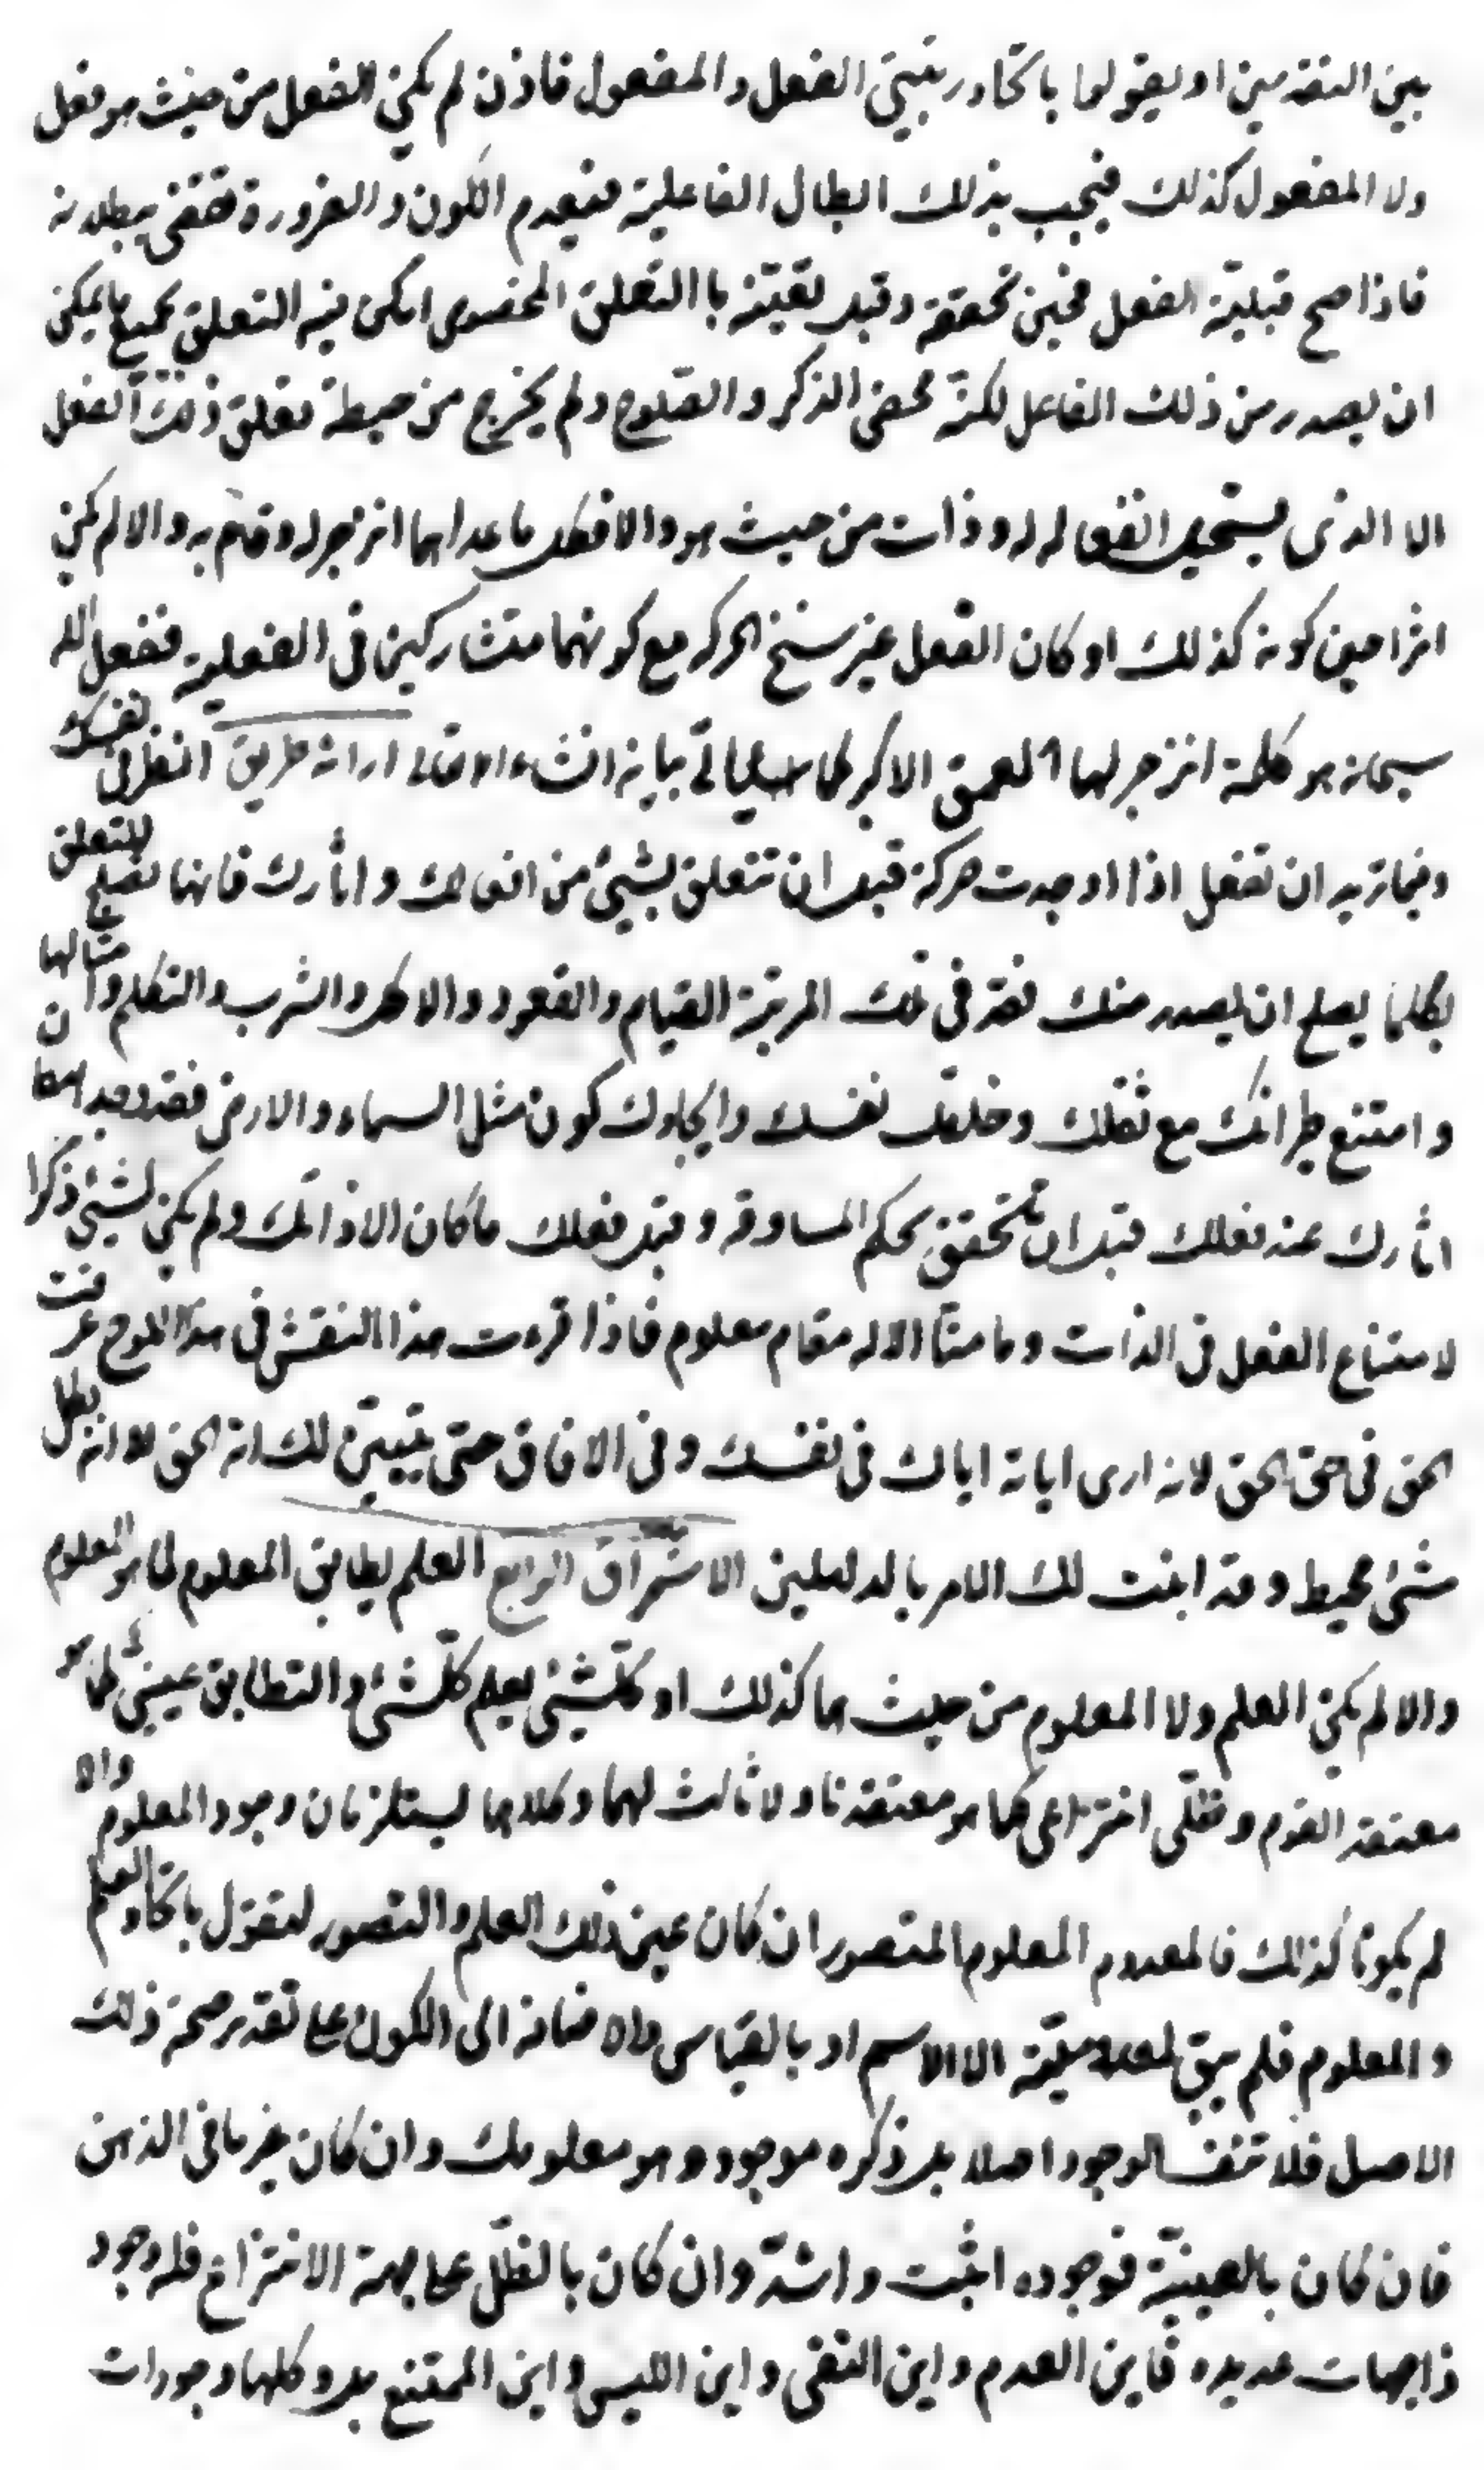 بين المتقدمين او يقولوا باتحاد رتبتي الفعل والمفعول فاذن لم يكن الفعل من حيث هو فعل
ولا المفعول كذلك فيجب بذلك ابطال الفاعلية فينعدم الكون والضرورة تقضى ببطلانه
فاذا صح قبلية الفعل فحين تحققه وقبل تقيته با التعلق المخصوص امكن فيه التعلق بجميع ما يمكن
ان يصدر من ذلك الفاعل لكنه محض الذكر والصلوح ولم يخرج من حيطة تعلق ذلك الفعل
الا الذى يستحيل انفعاله له وذات من حيث هو والا فكل ما عداهما انزجر له وقام به والا لم يكن
اثرا حين كونه كذلك او كان الفعل غير سنخ الحركه مع كونهما متشاركين فى الفعلية ففعل الله
سبحانه هو كلمة انزجر لها العمق الاكبر كما سياتى بيانه انشاء الله تعالى ارائة طريق انظر فى نفسك
وفيما تريد ان تفعل اذا اوجدت حركة قبل ان تتعلق بشيئ من افعالك واثارك فانها تصلح للتعلق
بكلما يصلح ان يصدر منك فقد فى تلك المرتبة القيام والقعود والاكل والشرب والتكلم وامثالها
وامتنع طيرانك مع ثقلك وخلقك نفسك وايجادك كون مثل السماء والارض فقد وجد امكان
اثارك عند فعلك قبل ان تتحقق بحكم المساوقه وقبل فعلك ما كان الا ذاتك ولم يكن لشيئ ذكرا
لامتناع الفعل فى الذات وما منا الا له مقام معلوم فاذا قرءت هذا النقش فى هذا اللوح عرفت
الحق فى حق الحق لانه ارى اياته اياك فى نفسك وفى الافاق حتى يتبين لك انه الحق الا انه بكل
شئ محيط وقد اثبت لك الامر بالدليلين الاشراق الرابع العلم يطابق المعلوم لما هو المعلوم
والا لم يكن العلم ولا المعلوم من حيث هما كذلك او كلشيئ يعلم كلشئ والتطابق عينيى كما هو
معتقد القوم وظلى اختراعى كما هو معتقدنا ولا ثالث لهما وكلاهما يستلزمان وجود المعلوم والا
لم يكونا كذلك فالمعدوم المعلوم المتصور ان كان عين ذلك العلم والتصور لتقول باتحاد العلم
والمعلوم فلم يبق لعدميته الا الاسم او بالقياس والاضافة الى الكون على تقدير صحة ذلك
الاصل فلا تنف الوجود اصلا بل ذكره موجود وهو معلومك وان كان غير ما فى الذهن
فان كان بالعينية فوجوده اثبت واشد وان كان بالظل على جهة الاختراع فله وجود
ذا جهات عديده فاين العدم واين النفى واين الليس واين الممتنع بل وكلها وجودات